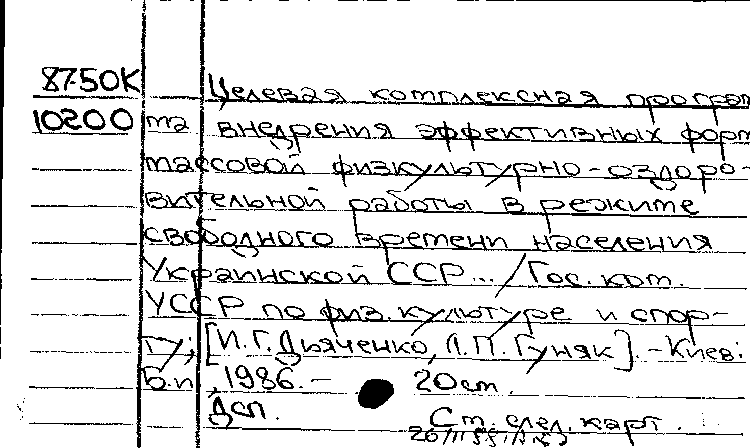 87-50К Целевая комплексная програм
10200 ма внедрения эффективных форм
массовой физкультурно-оздоро-
вительной работы в режиме
свободного времени населения
Украинской ССР... / Гос. ком.
УССР по физ. культуре и спор-
ту; [И.Г. Дьяченко, Л.П. Гуняк]. - Киев:
Б.и., 1986. - 20 ст.
ДСП.
См. след. карт.